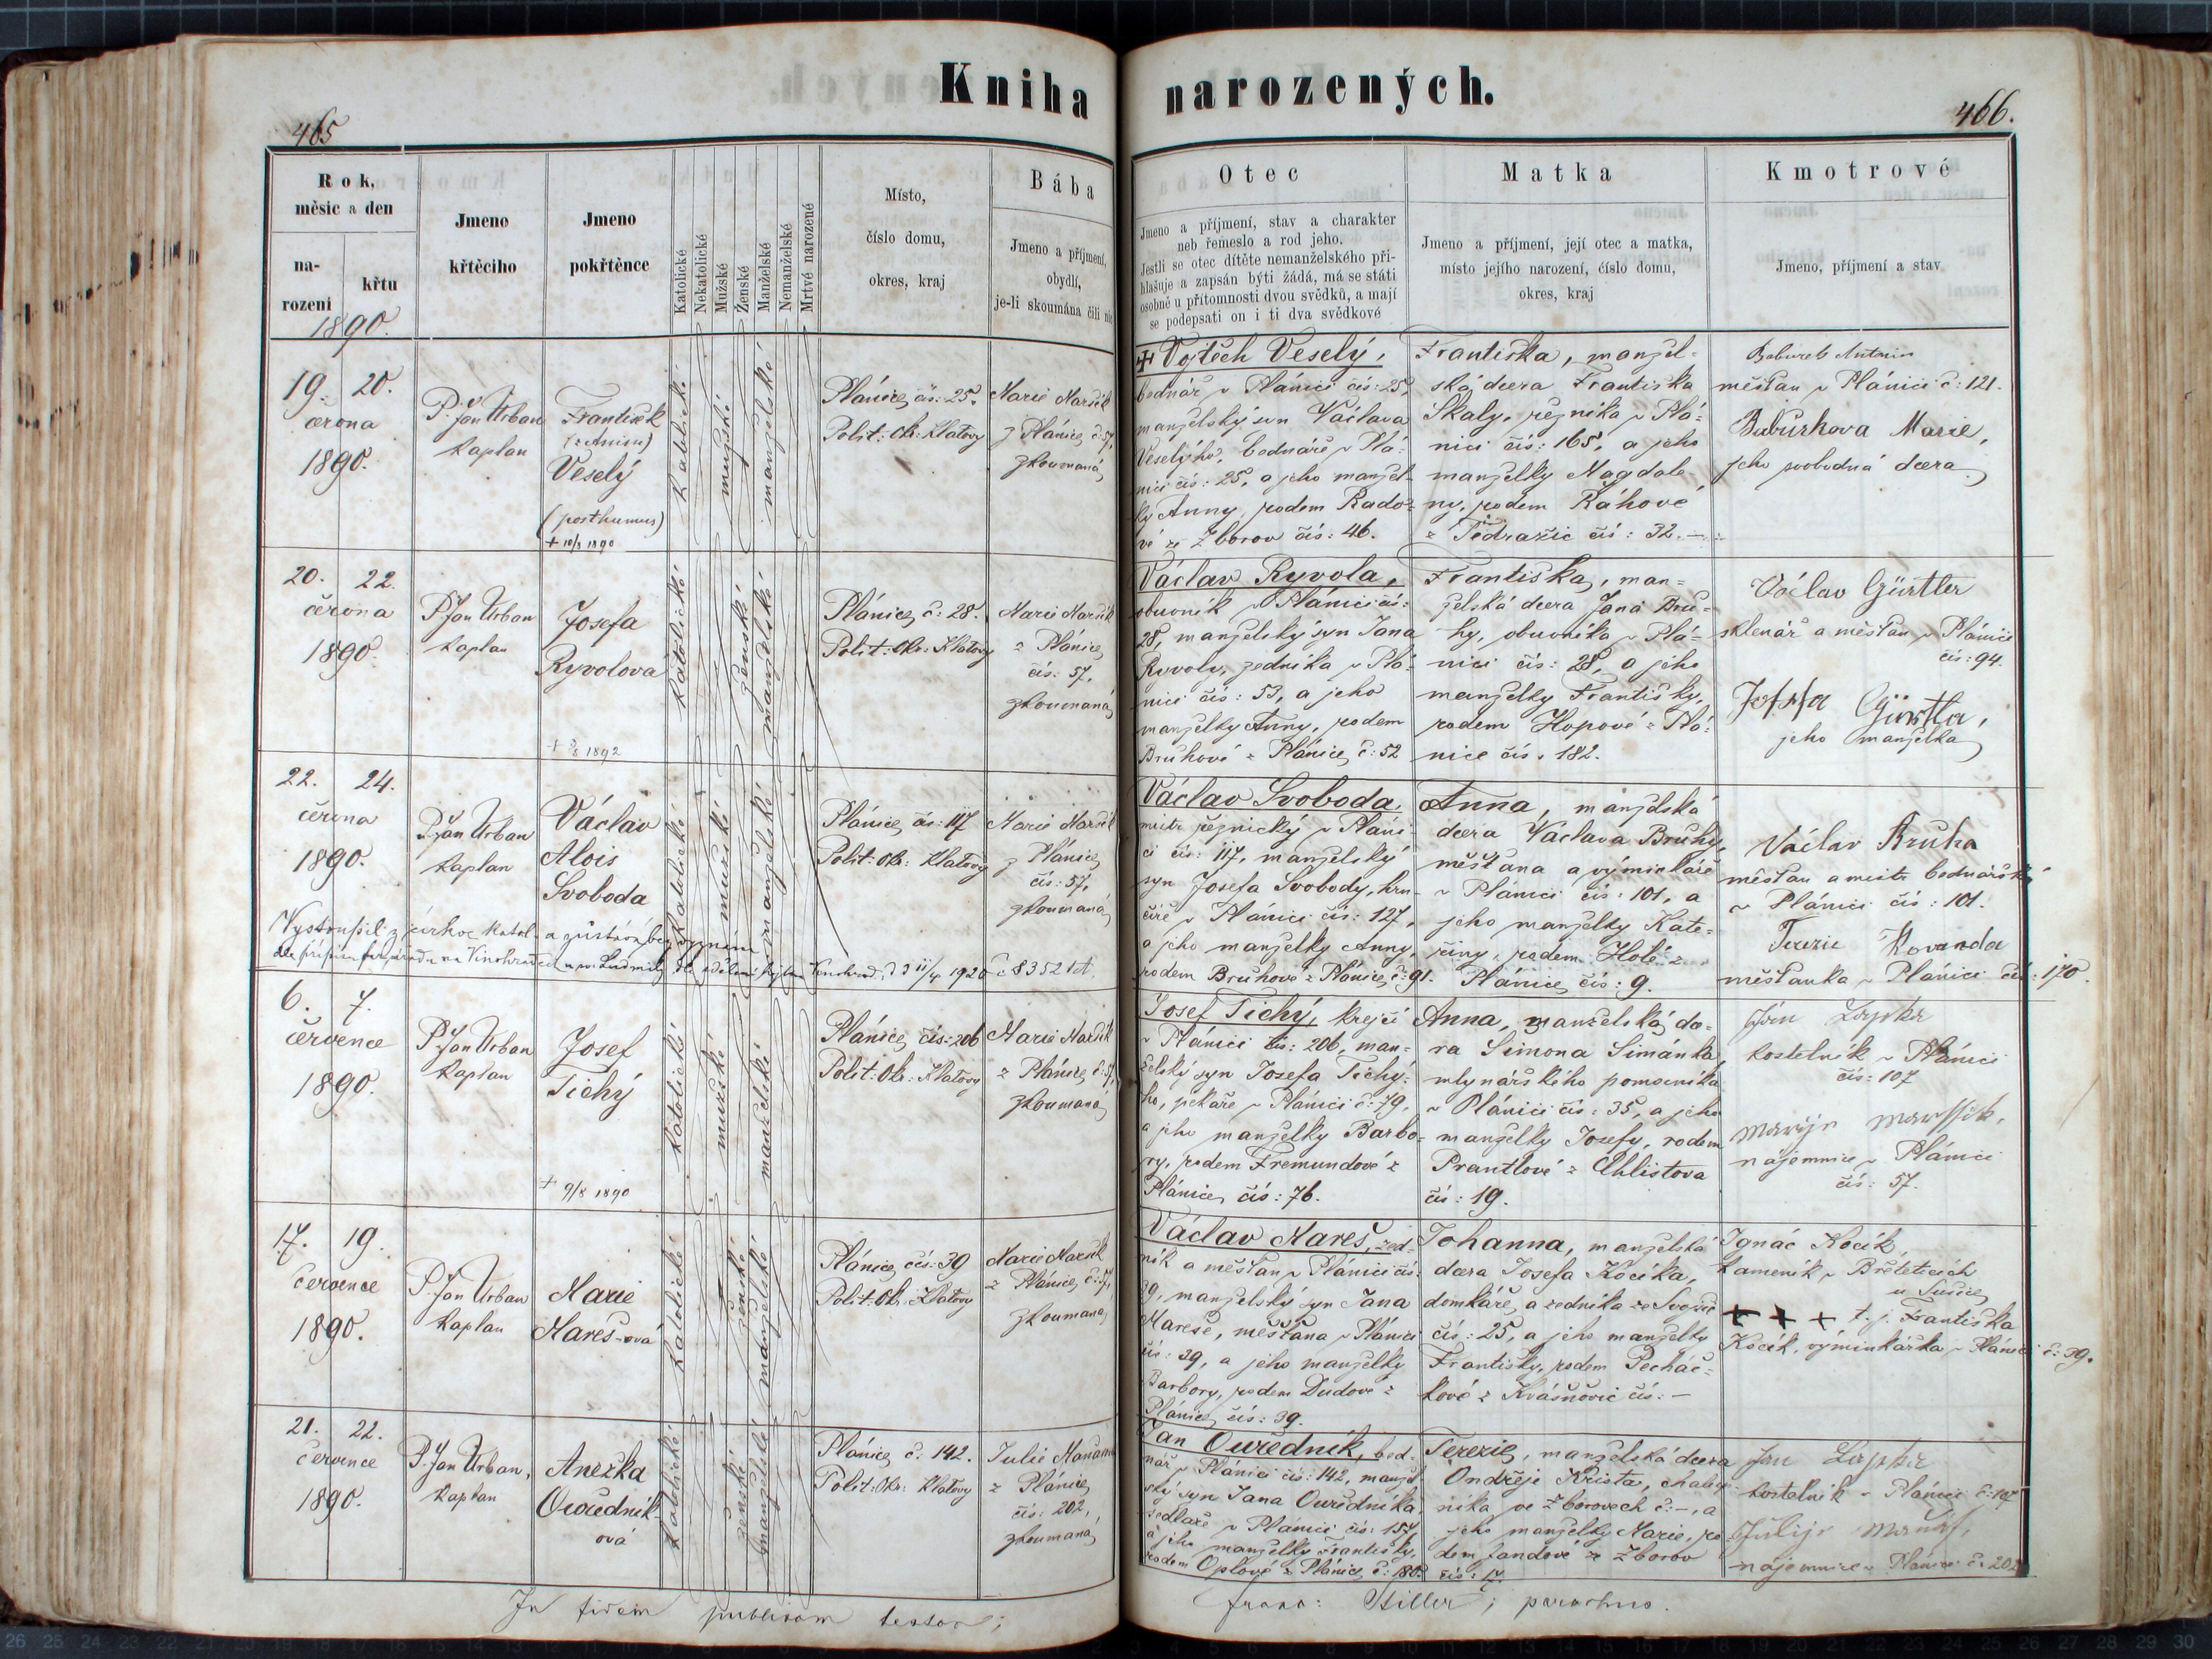 Kniha narozených.
465
466.
Rok,
měsíc a den
na-
rození
křtu
1890.
Jmeno
křtěcího
Jmeno
pokřtěnce
Katolické
Nekatolické
Mužské
Ženské
Manželské
Nemanželské
Mrtvě narozené
Místo,
číslo domu,
okres, kraj
Bába
Jmeno a příjmení,
obydlí,
je-li skoumána čili nic
Otec
Jmeno a příjmení, stav a charakter
neb řemeslo a rod jeho.
Jestli se otec dítěte nemanželského při-
hlašuje a zapsán býti žádá, má se státi
osobně u přítomnosti dvou svědků, a mají
se podepsati on i ti dva svědkové
Matka
Jmeno a příjmení, její otec a matka,
místo jejího narození, číslo domu,
okres, kraj
Kmotrové
Jmeno, příjmení a stav
19. 20.
června
1890.
P. Jan Urban
kaplan
František
Veselý
(posthumus)
+ 10/8 1890
katolické
mužské
manželské
Plánice, čís: 25.
Polit: Okr: Klatovy
Marie Maršík
z Plánice, č: 57,
zkoumaná
Vojtěch Veselý,
bednář v Plánici čís: 25,
manželský syn Václava
Veselýho, bednáře v Plá-
nici čís: 25, a jeho manžel-
ky Anny, rodem Rado-
vé ze Zborov čís: 46.
Františka, manžel-
ská dcera Františka
Skaly, řezníka v Plá-
nici čís: 165, a jeho
manželky Magdale-
ny, rodem Ráhové
z Tědražic čís: 32.
Antonin
měšťan v Plánici č: 121.
Babůrkova Marie,
jeho svobodná dcera
20. 22.
června
1890.
P. Jan Urban
kaplan
Josefa
Ryvolová
1892
katolické
ženské
manželské
Plánice, č: 28.
Polit: Okr: Klatovy
Marie Maršík
z Plánice,
čís: 57,
zkoumaná
Václav Ryvola,
obuvník v Plánici čís:
28, manželský syn Jana
Ryvoly, zedníka v Plá-
nici čís: 53, a jeho
manželky Anny, rodem
Bruhové z Plánice, č: 52
Františka, man-
želská dcera Jana Bru-
hy, obuvníka v Plá-
nici čís: 28, a jeho
manželky Františky,
rodem Hopové z Plá-
nice čís: 182.
Václav Gürtler
sklenář a měšťan v Plánici
čís: 94.
Josefa Gürtler,
jeho manželka
22. 24.
června
1890.
P. Jan Urban
kaplan
Václav
Alois
Svoboda
katolické
mužské
manželské
Plánice, čís: 117
Polit: Okr: Klatovy
Marie Maršík
z Plánice,
čís: 57,
zkoumaná
Vystoupil z církve katol. a zůstává bez vyznání
na Vinohradech 11/4 1920 č 8352
Václav Svoboda,
mistr řeznický v Pláni-
ci čís: 117, manželský
syn Josefa Svobody, hrn-
číře v Plánici čís: 127,
a jeho manželky Anny,
rodem Bruhové z Plánice, č: 91.
Anna, manželská
dcera Václava Bruhy,
měšťana a výminkáře
v Plánici čís: 101, a
jeho manželky Kate-
řiny, rodem Holé z
Plánice, čís: 9.
Václav Bruha
měšťan a mistr bednářský
v Plánici čís: 101.
Terezie Kovanda
měšťanka v Plánici čís: 170.
6. 7.
července
1890.
P. Jan Urban
kaplan
Josef
Tichý
+ 9/8 1890
katolické
mužské
manželské
Plánice, čís: 206
Polit: Okr: Klatovy
Marie Maršík
z Plánice, č: 57,
zkoumaná
Josef Tichý, krejčí
v Plánici čís: 206, man-
želský syn Josefa Tichý-
ho, pekaře v Plánici č: 79,
a jeho manželky Barbo-
ry, rodem Fremundové z
Plánice, čís: 76.
Anna, manželská dce-
ra Šimona Šimánka,
mlynářského pomocníka
v Plánici čís: 35, a jeho
manželky Josefy, rodem
Prantlové z Chlistova
čís: 19.
Jan
kostelník v Plánici
čís: 107
nájemnice v Plánici
čís: 57.
17. 19.
července
1890.
P. Jan Urban
kaplan
Marie
Mareš-ová
katolické
ženské
manželské
Plánice, čís: 39
Polit: Okr: Klatovy
Marie Maršík
z Plánice, č: 57,
zkoumaná
Václav Mareš, zed-
ník a měšťan v Plánici čís:
39, manželský syn Jana
Mareše, měšťana v Plánici
čís: 39, a jeho manželky
Barbory, rodem Dudové z
Plánice, čís: 39.
Johanna, manželská
dcera Josefa Kocíka,
domkáře, a zedníka ze
čís: 25, a jeho manželky
Františky, rodem Pecháč-
kové z Kvášňovic čís: —
Ignác Kocík,
kameník v Břeteticích
u Sušice,
+ + + t. j. Františka
Kocík, výminkářka v Plánici č: 39.
21. 22.
července
1890.
P. Jan Urban,
kaplan
Anežka
Ouředník-
ová
katolické
ženské
manželské
Plánice, č: 142.
Polit: Okr: Klatovy
Julie
z Plánice,
čís: 202,
zkoumaná
Jan Ouředník, bed-
nář v Plánici čís: 142, manžel-
ský syn Jana Ouředníka,
sedláře v Plánici čís: 157,
a jeho manželky Františky,
rodem Oplové z Plánice, č: 180.
Terezie, manželská dcera
Ondřeje Krista, chalup-
níka ve Zborovech č: —, a
jeho manželky Marie, ro-
dem Jandové ze Zborov
čís: 17.
Jan
kostelník v Plánici č: 107
nájemnice v Plánici č: 202
In fidem publicam testor;
Franc: Stiller; parochus.